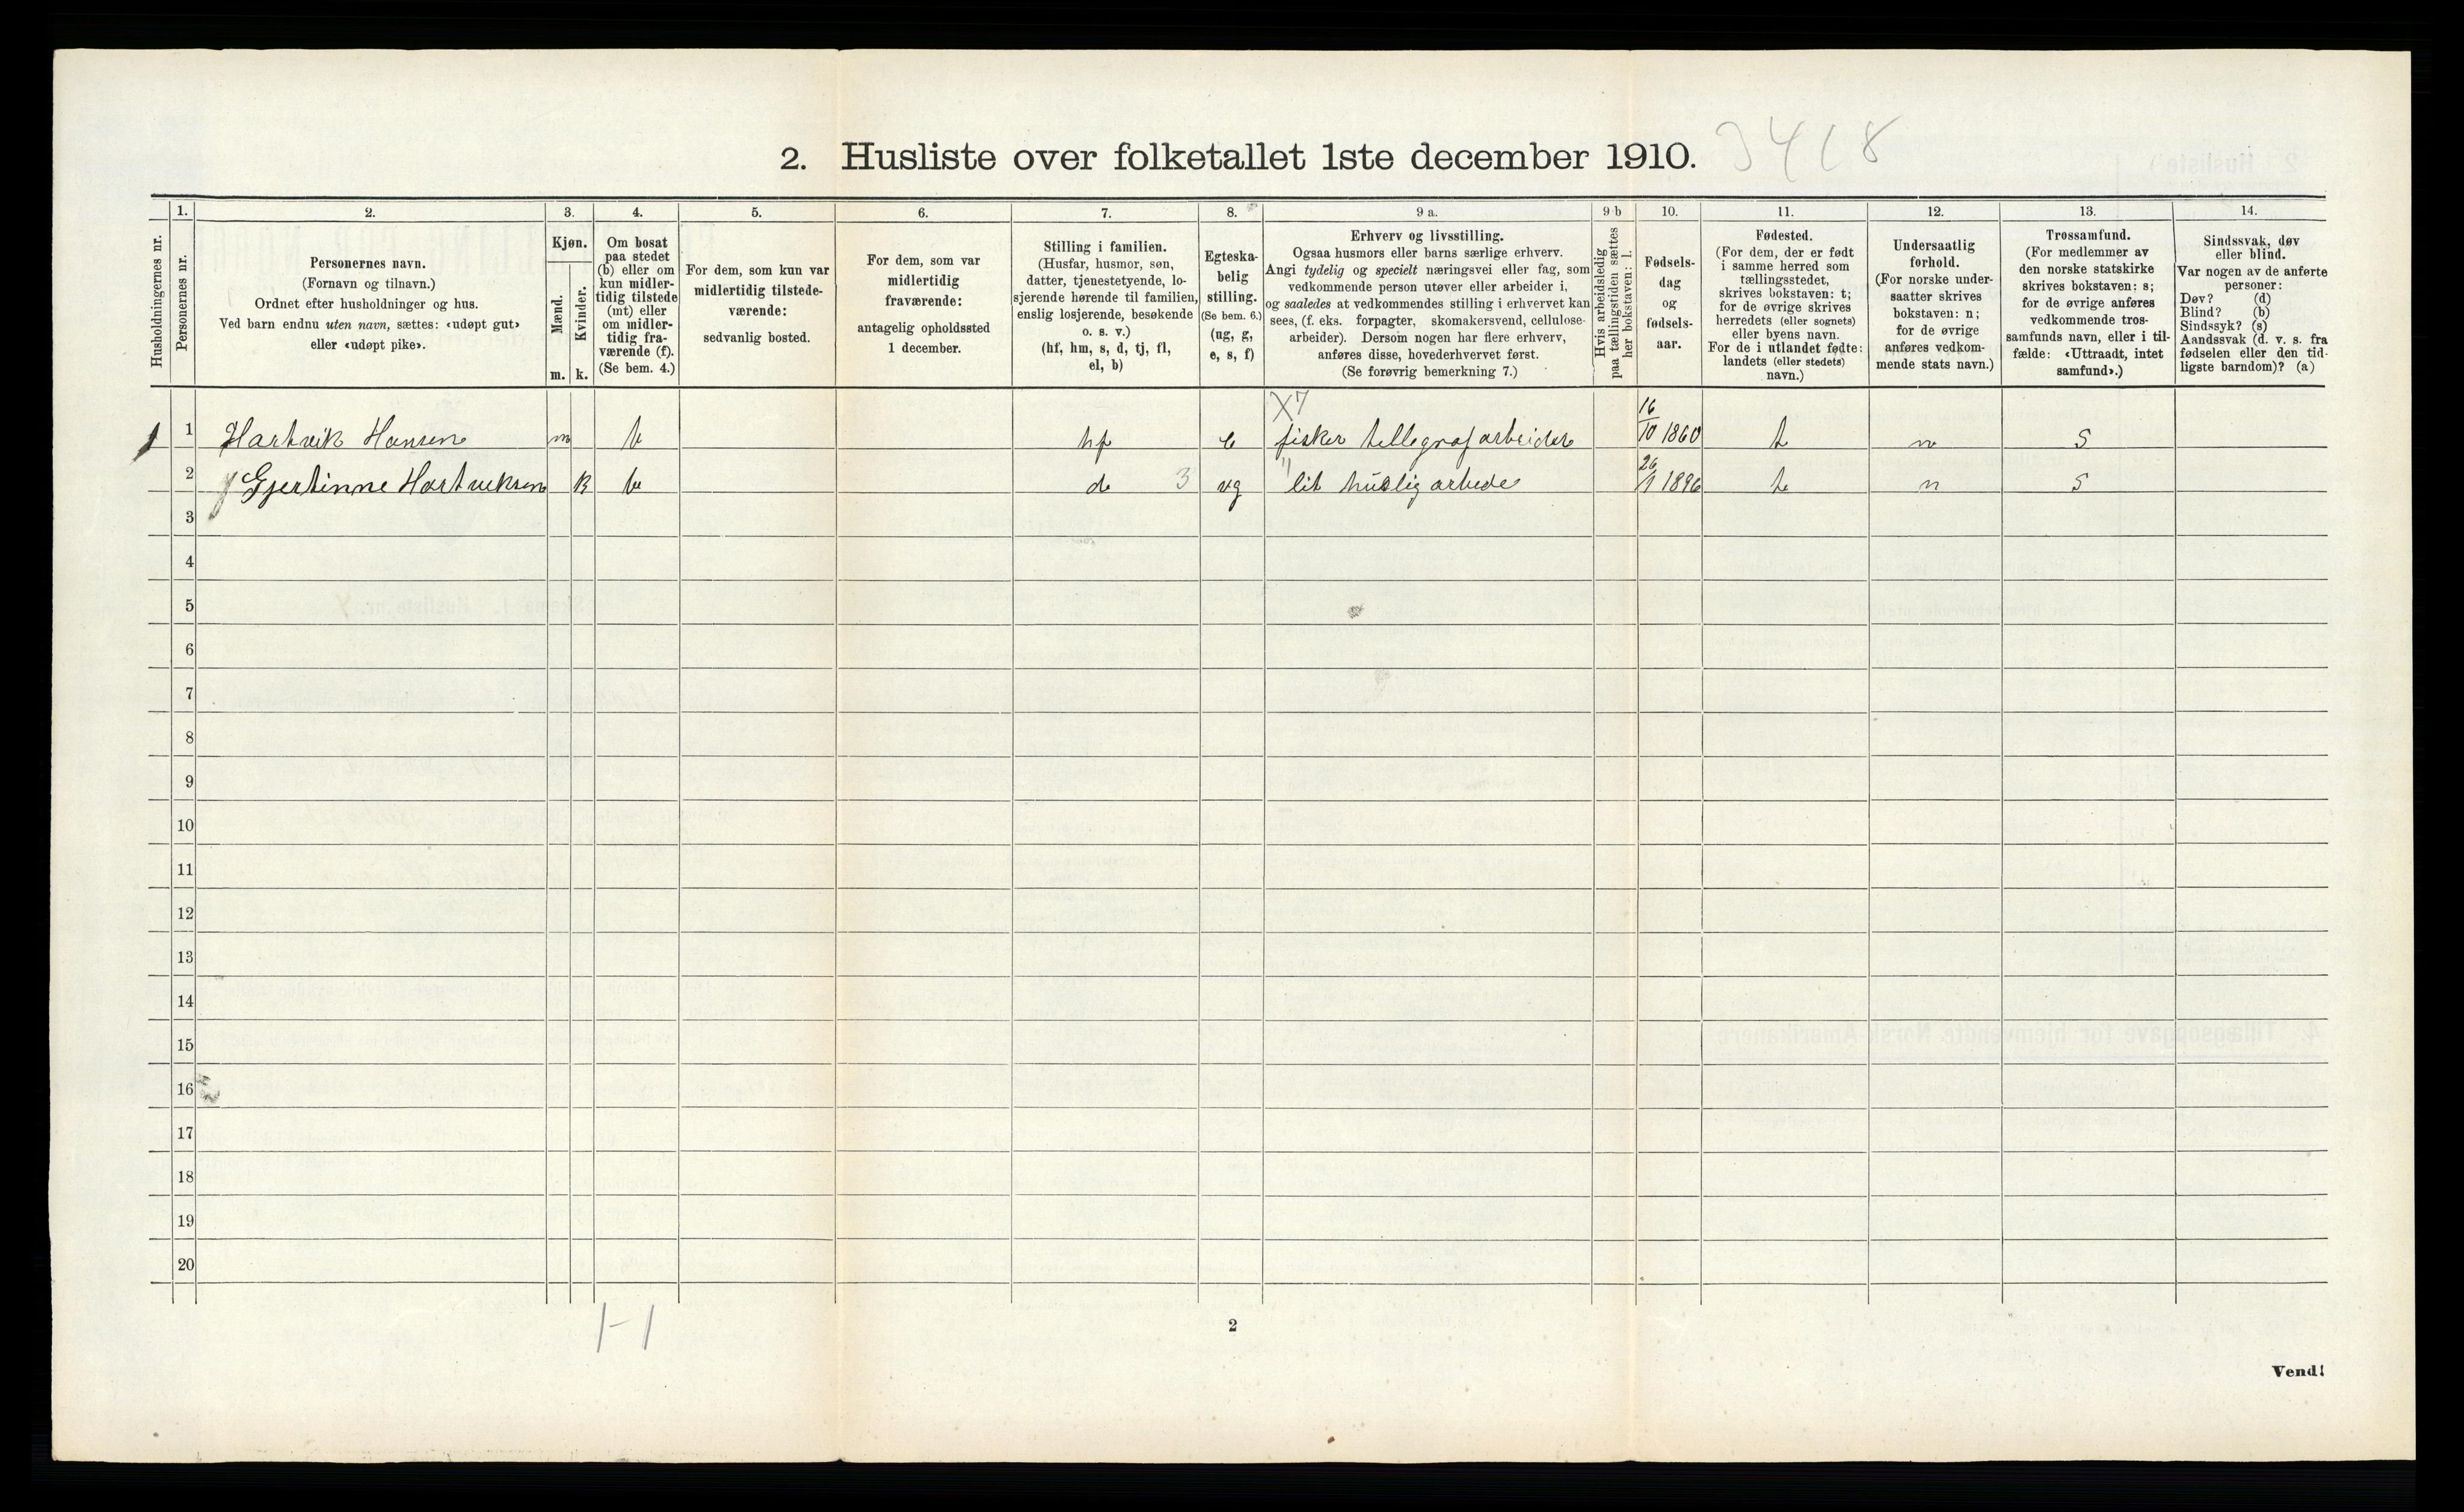 2. Husliste over folketallet 1ste december 1910. 3418
Husholdningernes nr.
1.
Personernes nr.
2.
Personernes navn.
(Fornavn og tilnavn.)
Ordnet efter husholdninger og hus.
Ved barn endnu uten navn, sættes: «udøpt gut»
eller «udøpt pike».
3.
Kjøn.
Mænd.
Kvinder.
m. k.
4.
Om bosat
paa stedet
(b) eller om
kun midler-
tidig tilstede
(mt) eller
om midler-
tidig fra-
værende (f).
(Se bem. 4.)
5.
For dem, som kun var
midlertidig tilstede-
værende:
sedvanlig bosted.
6.
For dem, som var
midlertidig
fraværende:
antagelig opholdssted
1 december.
7.
Stilling i familien.
(Husfar, husmor, søn,
datter, tjenestetyende, lo-
sjerende hørende til familien,
enslig losjerende, besøkende
o. s. v.)
(hf, hm, s, d, tj, fl,
el, b)
8.
Egteska-
belig
stilling.
(Se bem. 6.)
(ug, g,
e, s, f)
9 a.
Erhverv og livsstilling.
Ogsaa husmors eller barns særlige erhverv.
Angi tydelig og specielt næringsvei eller fag, som
vedkommende person utøver eller arbeider i,
og saaledes at vedkommendes stilling i erhvervet kan
sees, (f. eks. forpagter, skomakersvend, cellulose-
arbeider). Dersom nogen har flere erhverv,
anføres disse, hovederhvervet først.
(Se forøvrig bemerkning 7.)
9 b
Hvis arbeidsledig
paa tællingstiden sættes
her bokstaven: l.
10.
Fødsels-
dag
og
fødsels-
aar.
11.
Fødested.
(For dem, der er født
i samme herred som
tællingsstedet,
skrives bokstaven: t;
for de øvrige skrives
herredets (eller sognets)
eller byens navn.
For de i utlandet fødte:
landets (eller stedets)
navn.)
12.
Undersaatlig
forhold.
(For norske under-
saatter skrives
bokstaven: n;
for de øvrige
anføres vedkom-
mende stats navn.)
13.
Trossamfund.
(For medlemmer av
den norske statskirke
skrives bokstaven: s;
for de øvrige anføres
vedkommende tros-
samfunds navn, eller i til-
fælde: «Uttraadt, intet
samfund».)
14.
Sindssvak, døv
eller blind.
Var nogen av de anførte
personer:
Døv? (d)
Blind? (b)
Sindssyk? (s)
Aandssvak (d. v. s. fra
fødselen eller den tid-
ligste barndom)? (a)
X7
1 1 Hartvik Hansen m b hf e fisker tellegraf arbeider 16/10 1860 t n S
2 Gjertinne Hartviksen k b d 3 ug " lit huslig arbede 26/1 1896 t n S
3
4
5
6
7
8
9
10
11
12
13
14
15
16
17
18
19
20
1-1
2
Vend!